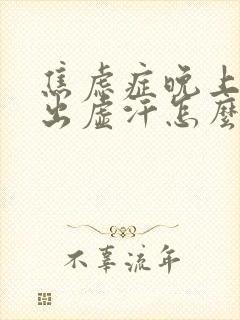 焦虑症晚上
出虚汗怎麼
不辜流年